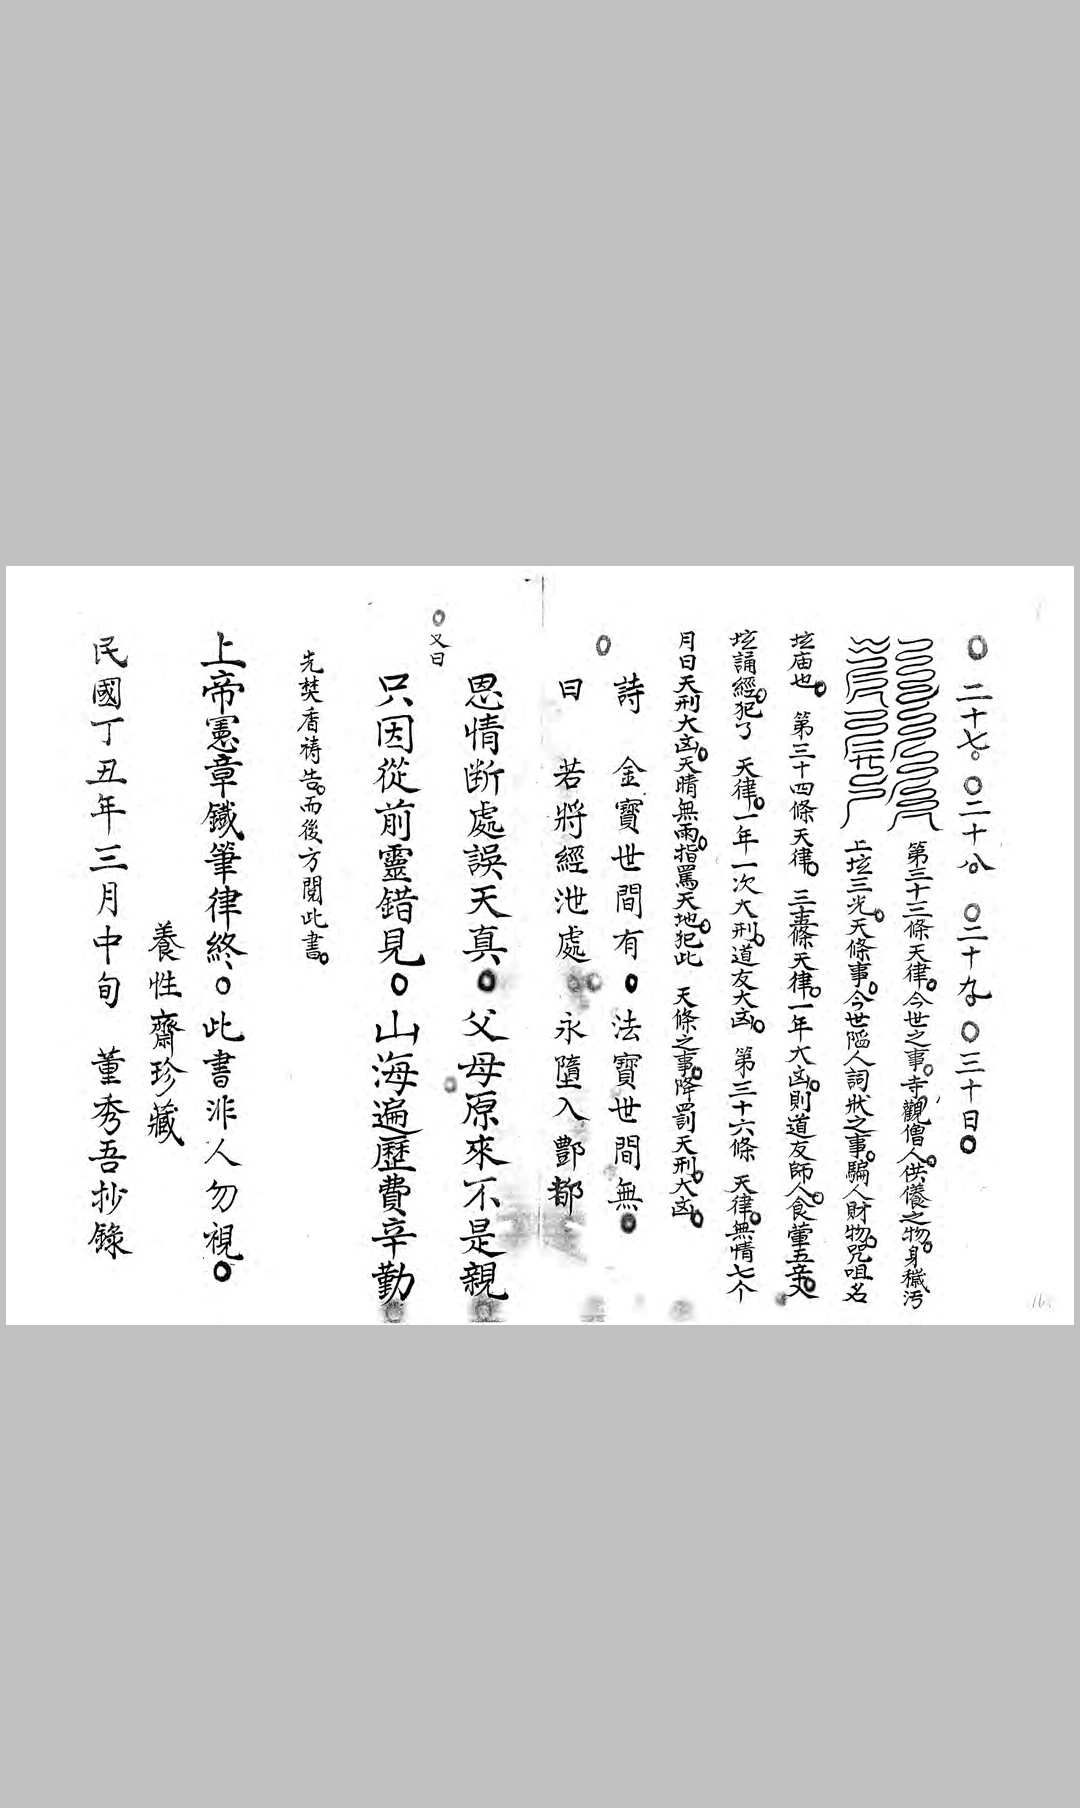 〇二十七。〇二十八 〇二十九 〇三十日〇
第三十三條天律。今世之事。寺觀僧人。供養之物。身穢污
上坛三光。天條事。今世陷人詞狀之事。騙人財物。咒咀名
坛庙也。第三十四條天律。三十五條天律。一年大凶。則道友師人。食葷五辛。又
坛誦經。犯了 天律。一年一次大刑。道友大凶。第三十六條 天律。無情七个
月日天刑大凶。天晴無雨。指罵天地。犯此 天條之事。降罰天刑。大凶。
〇詩 金寶世間有。法寶世間無。
曰 若將經泄處 永墮入酆都
〇又曰
恩情断處誤天真。父母原來不是親
只因從前靈錯見。山海遍歷費辛勤
先焚香祷告。而後方閲此書。
上帝憲章鐵筆律終、〇此書非人勿視。
養性齋珍藏
民國丁丑年三月中旬 董秀吾抄錄
16